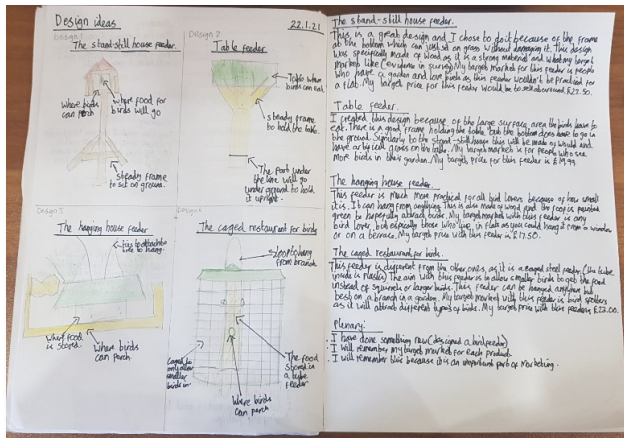 Design ideas
22.1.21
Design 1
The stand-still house feeder.
Where birds
can perch
where food for
birds will go
steady frame
to sit on ground.
Design 2
Table feeder
Table where
birds can eat.
steady frame
to hold the table.
The part under
the line will go
under ground to hold
it upright.
Design 3
The hanging house feeder
to attach to
tree to hang.
Where food
is stored.
Where birds
can perch
Design 4
The caged restaurant for birds
to hang
from branch.
Caged to
only allow
smaller
birds in
The food
stored in
a tube
feeder.
Where birds
can perch
The stand-still house feeder.
This is a great design and I chose to do it because of the frame
at the bottom which can just sit on grass without damaging it. This design
was specifically made of wood as it is a strong material and what my target
market like (evidence in survey). My target market for this feeder is people
who have a garden and love birds as this feeder wouldn't be practical for
a flat. My target price for this feeder would be to sell around £22.50.
Table feeder.
I created this design because of the large surface area the birds have to
eat. There is a good frame holding the table but the bottom does have to go in
the ground. Similarly to the stand-still house this will be made of wood and
have artificial grass on the table. My target market is for people who see
more birds in their garden. My target price for this feeder is £19.99
The hanging house feeder.
This feeder is much more practical for all bird lovers because of how small
it is. It can hang from anything. This is also made of wood and the roof is painted
green to hopefully attract birds. My target market with this feeder is any
bird lover, but especially those who live in flats as you could hang it from a window
or on a terrace. My target price with this feeder is £17.50.
The caged restaurant for birds.
This feeder is different from the other ones, as it is a caged steel feeder (the tube
inside is plastic). The aim with this feeder is to allow smaller birds to get the food
instead of squirrels or larger birds. This feeder can be hanged anywhere but
best on a branch in a garden. My target market with this feeder is bird spotters
as it will attract different types of birds. My target price with this feeder is £23.00.
Plenary:
- I have done something new (designed a bird feeder)
- I will remember my target market for each product
- I will remember this because it is an important part of marketing.